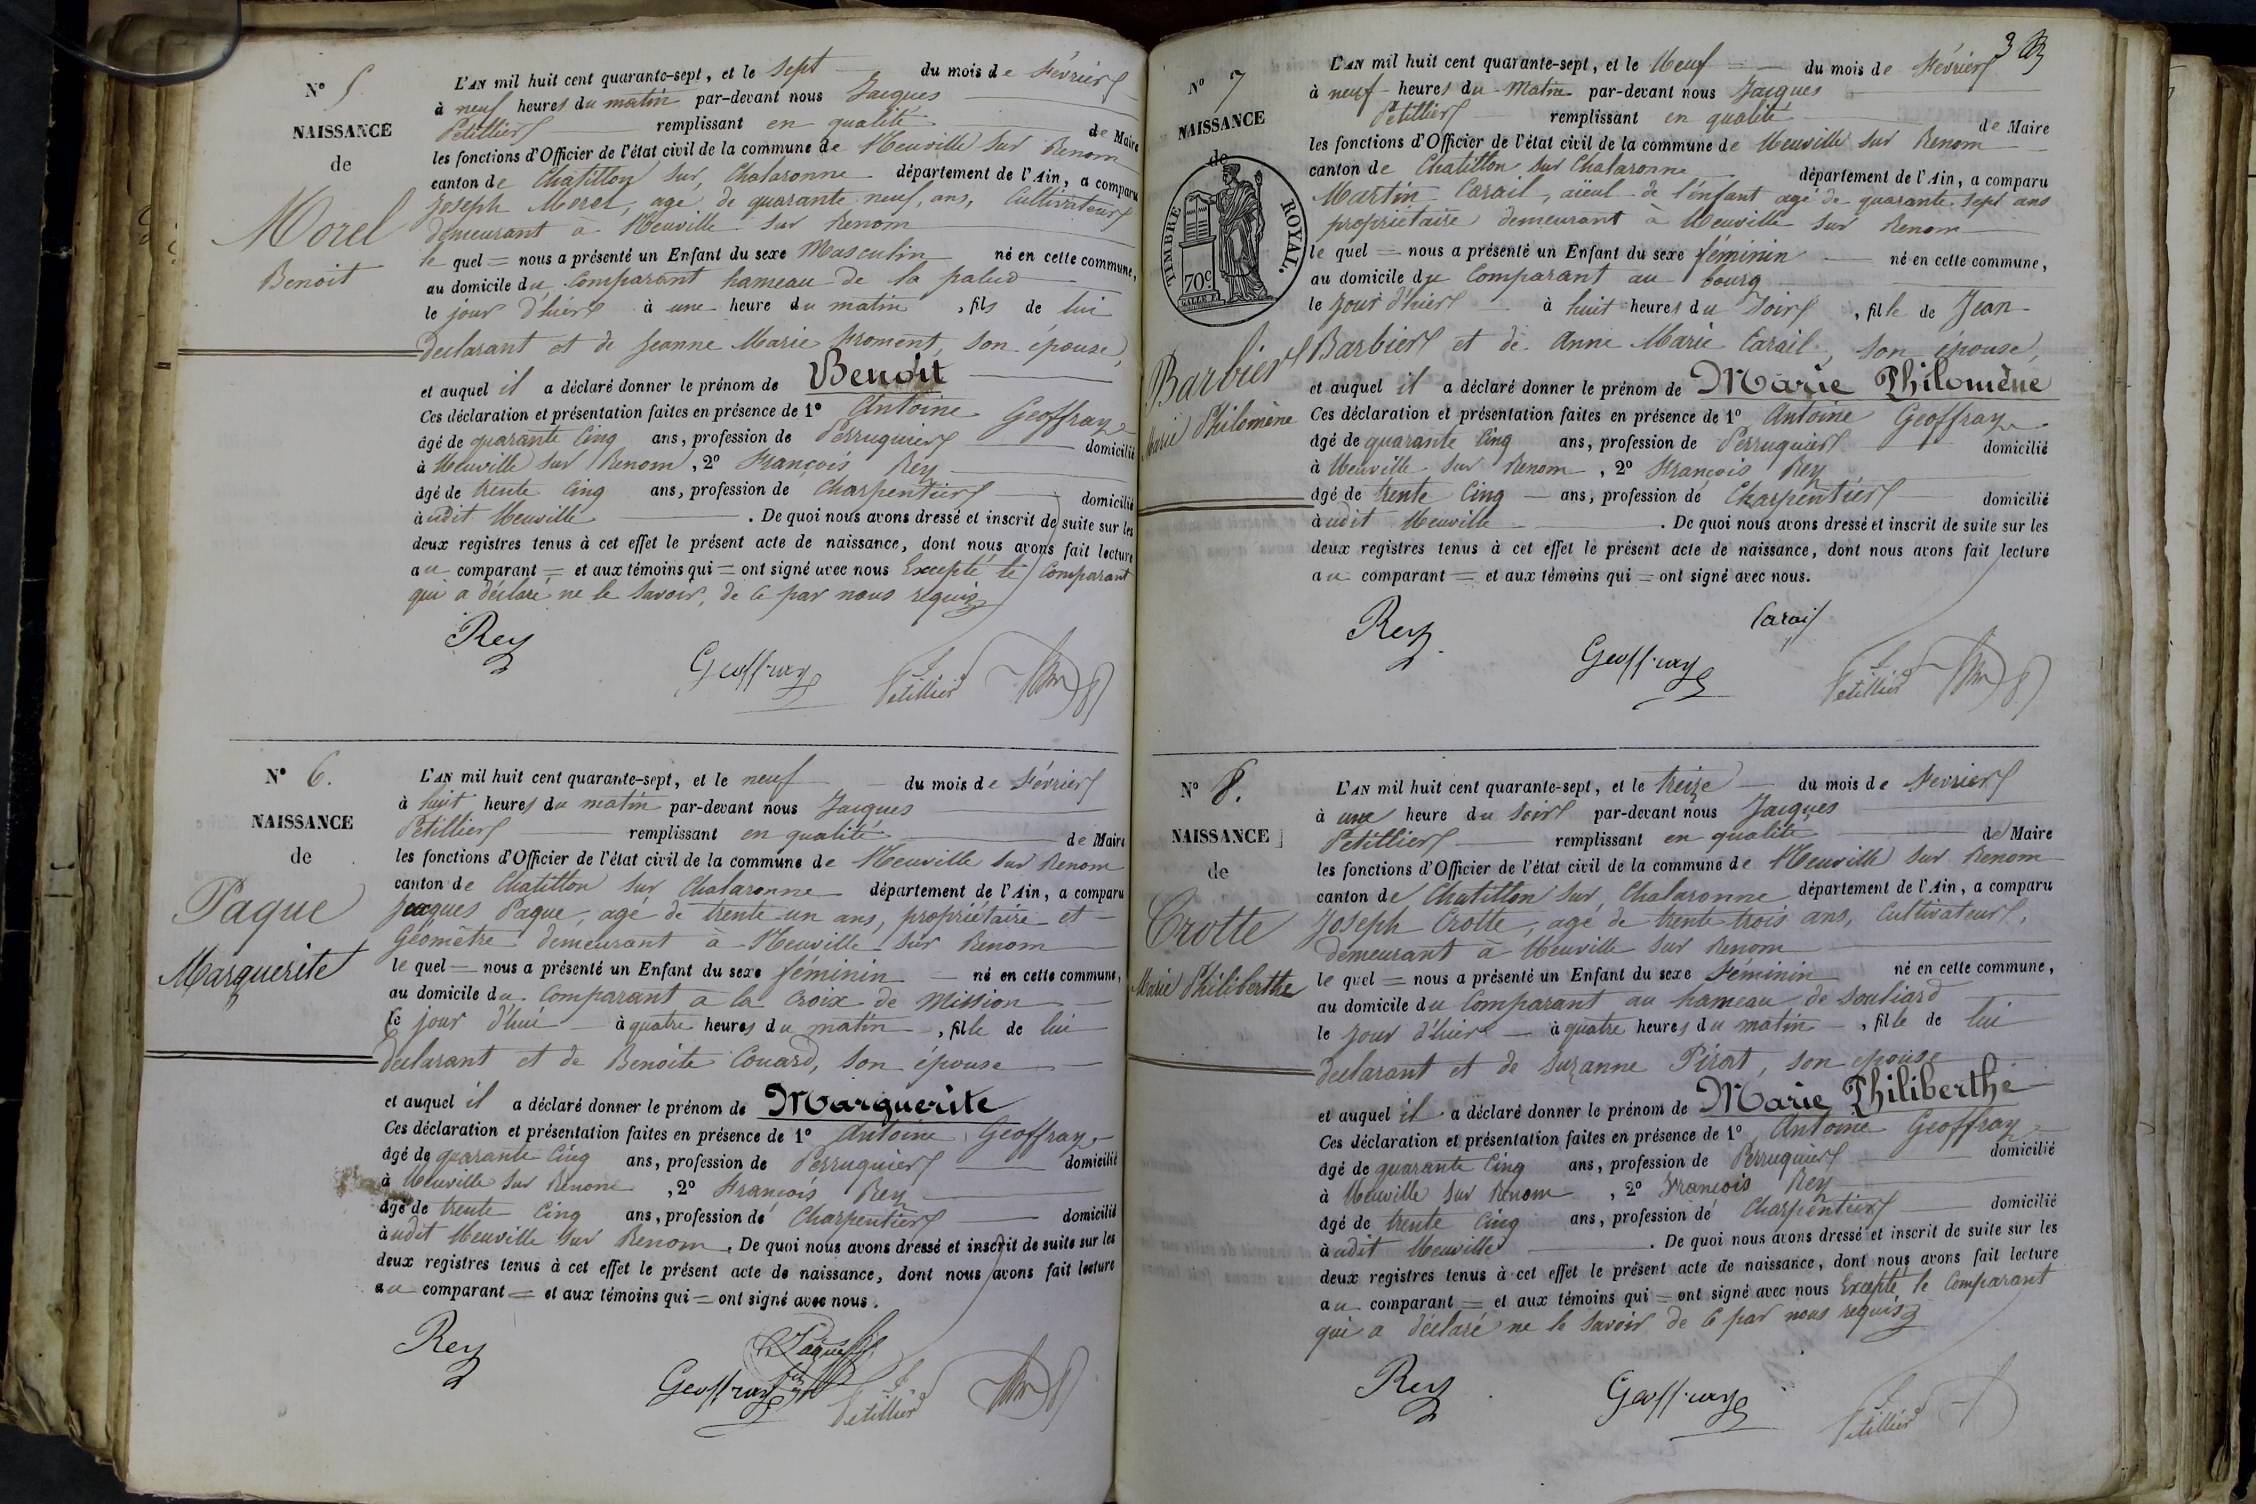 N° 5
NAISSANCE
de
Morel
Benoit
L'AN mil huit cent quarante-sept, et le sept du mois de Février
à neuf heures du matin par-devant nous Jacques
Petillier remplissant en qualité de Maire
les fonctions d'Officier de l'état civil de la commune de Neuville sur Renom
canton de Chatillon sur Chalaronne département de l'Ain, a comparu
Joseph Morel, agé de quarante neuf ans, Cultivateur
demeurant à Neuville sur Renom
le quel = nous a présenté un Enfant du sexe Masculin né en cette commune,
au domicile du Comparant hameau de la palud
le jour d'hier à une heure du matin, fils de lui
declarant et de Jeanne Marie Froment, son épouse,
et auquel il a déclaré donner le prénom de Benoit
Ces déclaration et présentation faites en présence de 1° Antoine Geoffray
âgé de quarante Cinq ans, profession de Perruquier domicilié
à Neuville sur Renom, 2° François Rey
âgé de trente Cinq ans, profession de Charpentier domicilié
audit Neuville. De quoi nous avons dressé et inscrit de suite sur les
deux registres tenus à cet effet le présent acte de naissance, dont nous avons fait lecture
au comparant = et aux témoins qui = ont signé avec nous Excepté le Comparant
qui a déclaré ne le savoir, de ce par nous requis
Rey
Geoffray
Petillier
N° 6.
NAISSANCE
de
Paque
Marguerite
L'AN mil huit cent quarante-sept, et le neuf du mois de Février
à huit heures du matin par-devant nous Jacques
Petillier remplissant en qualité de Maire
les fonctions d'Officier de l'état civil de la commune de Neuville sur Renom
canton de Chatillon sur Chalaronne département de l'Ain, a comparu
Jacques Paque, agé de trente un ans, propriétaire et
Géomètre demeurant à Neuville sur Renom
le quel = nous a présenté un Enfant du sexe féminin né en cette commune,
au domicile du Comparant a la Croix de Mission
le jour d'hui à quatre heures du matin, fille de lui
declarant et de Benoite Couard, son épouse
et auquel il a déclaré donner le prénom de Marguerite
Ces déclaration et présentation faites en présence de 1° Antoine Geoffray
âgé de quarante Cinq ans, profession de Perruquier domicilié
à Neuville sur Renom, 2° François Rey
âgé de trente Cinq ans, profession de Charpentier domicilié
audit Neuville sur Renom. De quoi nous avons dressé et inscrit de suite sur les
deux registres tenus à cet effet le présent acte de naissance, dont nous avons fait lecture
au comparant = et aux témoins qui = ont signé avec nous.
Rey
Paque
Geoffray
Petillier
N° 7
NAISSANCE
de
TIMBRE ROYAL.
70c
Barbier
Marie Philomène
L'AN mil huit cent quarante-sept, et le Neuf du mois de Février
à neuf heures du Matin par-devant nous Jacques
Petillier remplissant en qualité de Maire
les fonctions d'Officier de l'état civil de la commune de Neuville sur Renom
canton de Chatillon sur Chalaronne département de l'Ain, a comparu
Martin Carail, aïeul de l'énfant agé de quarante sept ans
propriétaire demeurant à Neuville sur Renom
le quel = nous a présenté un Enfant du sexe féminin né en cette commune,
au domicile du Comparant au bourg
le Jour d'hier à huit heures du Soir, fille de Jean
Barbier et de Anne Marie Carail, son épouse,
et auquel il a déclaré donner le prénom de Marie Philomène
Ces déclaration et présentation faites en présence de 1° Antoine Geoffray
âgé de quarante Cinq ans, profession de Perruquier domicilié
à Neuville sur Renom, 2° François Rey
âgé de trente Cinq ans, profession de Charpentier domicilié
audit Neuville. De quoi nous avons dressé et inscrit de suite sur les
deux registres tenus à cet effet le présent acte de naissance, dont nous avons fait lecture
au comparant = et aux témoins qui = ont signé avec nous.
Carail
Rey
Geoffray
Petillier
N° 8.
NAISSANCE
de
Crotte
Marie Philiberthe
L'AN mil huit cent quarante-sept, et le treize du mois de Fevrier
à une heure du soir par-devant nous Jacques
Petillier remplissant en qualité de Maire
les fonctions d'Officier de l'état civil de la commune de Neuville sur Renom
canton de Chatillon sur Chalaronne département de l'Ain, a comparu
Joseph Crotte, agé de trente trois ans, Cultivateur,
demeurant à Neuville sur Renom
le quel = nous a présenté un Enfant du sexe Féminin né en cette commune,
au domicile du Comparant au hameau de Souliard
le Jour d'hier à quatre heures du matin, fille de lui
declarant et de Suzanne Pirat, son epouse
et auquel il a déclaré donner le prénom de Marie Philiberthe
Ces déclaration et présentation faites en présence de 1° Antoine Geoffray
âgé de quarante Cinq ans, profession de Perruquier domicilié
à Neuville sur Renom, 2° François Rey
âgé de trente Cinq ans, profession de Charpentier domicilié
audit Neuville. De quoi nous avons dressé et inscrit de suite sur les
deux registres tenus à cet effet le présent acte de naissance, dont nous avons fait lecture
au comparant = et aux témoins qui = ont signé avec nous Excepté le Comparant
qui a déclaré ne le savoir de ce par nous requis
Rey
Geoffray
Petillier